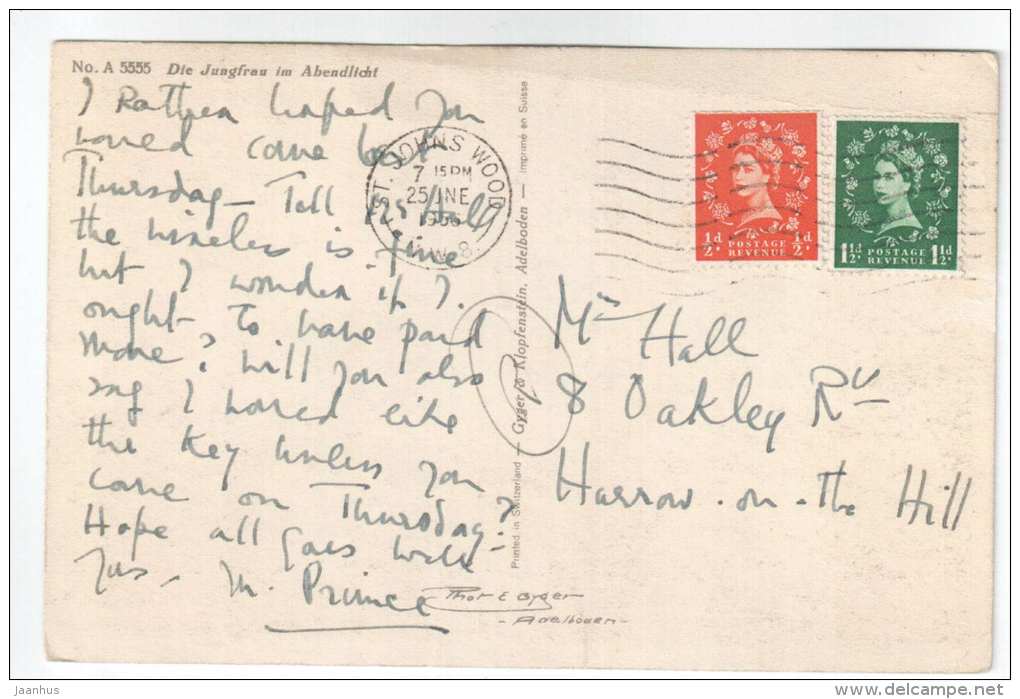 No. A 5555 Die Jungfrau im Abendlicht
I Rather hoped you
would come last
Thursday - Tell
the wireless is fine
but I wonder if I
ought to have paid
more? Will you also
say I would like
the key unless you
come on Thursday?
Hope all goes well
Yrs. M. Prince
ST. JOHNS WOOD
7 15 PM
25 JNE
1956
N.W.8.
½d ½d
POSTAGE
REVENUE
1½d 1½d
POSTAGE
REVENUE
Mrs Hall
8 Oakley Rd
Harrow-on-the Hill
Printed in Switzerland — Gyger & Klopfenstein, Adelboden — Imprimé en Suisse
Phot E Gyger
- Adelboden -
jaanhus
http://www.delcampe.net